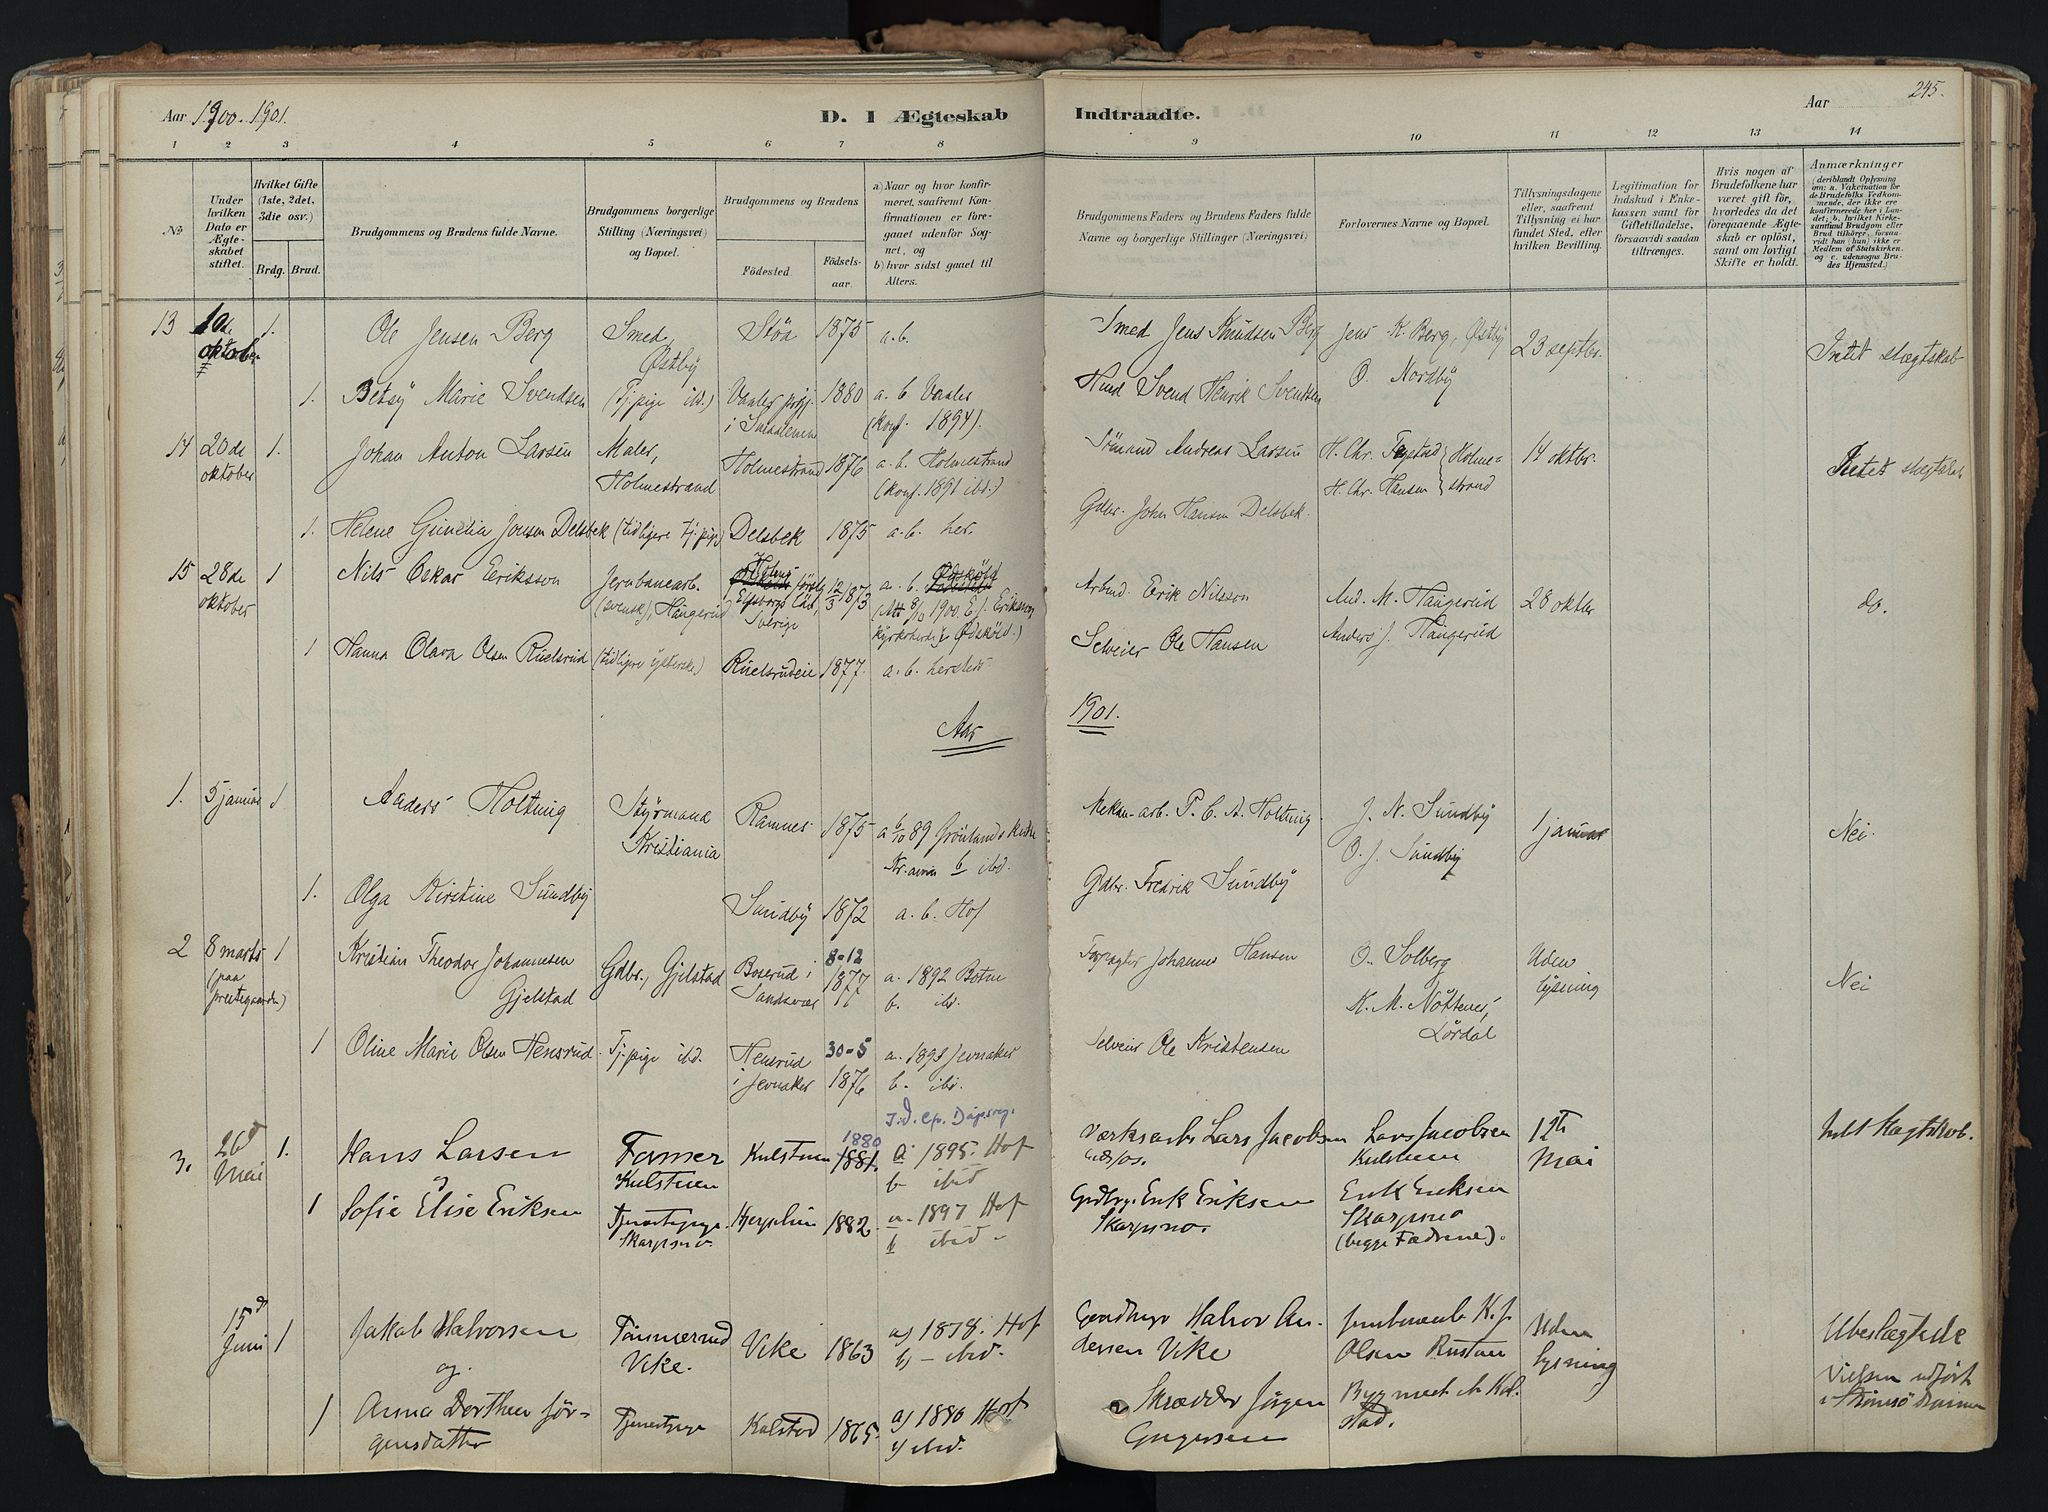 Aar 1900-1901.
D. I Ægteskab Indtraadte.
Aar 245.
1 2 3 4 5 6 7 8 9 10 11 12 13 14
No
Under hvilken Dato er Ægteskabet stiftet.
Hvilket Gifte (1ste, 2det, 3die osv.)
Brdg. Brud.
Brudgommens og Brudens fulde Navne.
Brudgommens borgerlige Stilling (Næringsvei) og Bopæl.
Brudgommens og Brudens
Födested. Födsels-aar.
a) Naar og hvor konfirmeret, saafremt Konfirmationen er foregaaet udenfor Sognet, og
b) hvor sidst gaaet til Alters.
Brudgommens Faders og Brudens Faders fulde Navne og borgerlige Stillinger (Næringsvei)
Forlovernes Navne og Bopæl.
Tillysningsdagene eller, saafremt Tillysning ei har fundet Sted, efter hvilken Bevilling.
Legitimation for Indskud i Enkekassen samt for Giftetilladelse, forsaavidt saadan tiltrænges.
Hvis nogen af Brudefolkene har været gift før, hvorledes da det foregaaende Ægteskab er opløst, samt om lovligt Skifte er holdt.
Anmærkninger (deriblandt Oplysning om: a. Vakcination for de Brudefolks Vedkommende, der ikke ere konfirmerede her i Landet; b. hvilket Kirkesamfund Brudgom eller Brud tilhører, forsaavidt han (hun) ikke er Medlem af Statskirken, og c. udensogns Brudes Hjemsted.)
13 10de oktober 1. Ole Jensen Berg Smed, Østby Støa 1875 a.b. Smed Jens Knudsen Berg Jens K. Berg, Østby 23 septbr. Intet slægtskab
1. Betsy Marie Svendsen (Tj.pige ibd.) Vaaler prgj. i Smaalenene 1880 a. b Vaaler (konf. 1894). Svend Henrik Svendsen O. Nordby
14 20de oktober 1. Johan Anton Larsen Maler, Holmestrand Holmestrand 1876 a. b. Holmestrand (konf. 1891 ibd.) Sömand Andreas Larsen H. Chr. H. Chr. Hansen Holmestrand 14 oktbr. Intet
1. Helene Gunelia Jonsen Delsbek (tidligere tj.pige) Delsbek 1875 a. b. her. Gdbr. John Hansen Delsbek.
15 28de oktober 1 Nils Oskar Eriksson Jernbanearb. (svensk), Hangerud Elfsborgs Län, Sverige 12/3 1873 a. b. Ödsköld (Att 8/10 1900. E. J. Eriksson, kyrkoherde i Ödsköld.) Arbmd. Erik Nilsson And. M. Hangerud 28 oktbr do.
1 Hanna Olava Olsen Ruelsrud (tidligere ) Ruelsrudeie 1877. a. b. hersteds Selveier Ole Hansen Anders J. Hangerud
Aar 1901.
1. 5 januar 1 Anders Holtung Styrmand Kristiania Ramnes 1875 a 6/10 89 Grönlands kirke Kr.ania b ibd. Mekan-arb. P. C. A. Holtung J. N. Sundby 1 januar Nei.
1. Olga Kirstine Sundby Sundby 1872 a. b. Hof Gdbr. Fredrik Sundby O. J. Sundby
2 8 marts (paa prestegaarden) 1 Kristian Theodor Johannesen Gjelstad Gdbr., Gjelstad Boserud i Sandsvær 8-12 1877 a. 1892 Botne b. ibd. Forpagter Johannes Hansen O. Solberg Uden lysning Nei
1 Oline Marie Olsen Hensrud Tj.pige ibd. Hensrud i Jevnaker 30-5 1876 a. 1891 Jevnaker b. ibd. Selveier Ole Kristensen K. M. Nöttenes, Lördal
3. 26d Mai 1. Hans Larsen Kulstuen Kulstuen 1880 1881. a. 1895. Hof b ibid Værksarb. Lars Jacobsen Lars Jacobsen Kulstuen 12te Mai
1 Sofie Elise Eriksen Tjenestepige Skarpsno. 1882. a. 1897 Hof b ibid. Gaardbr. Erik Eriksen Skarpsno. Erik Eriksen Skarpsno (begge Fædrene).
15d Juni 1 Jakob Halvorsen og Vike. Vike 1863 a) 1878. Hof b) - ibid. Halvor Andersen Vike K. J. Olsen Uden lysning Ubeslægtede Vielsen udført i Strømsø
1 Anna Dorthea Jörgensdatter Tjenestpige Kolstad 1865. a) 1880 Hof b) ibid. Skrædder Jörgen Kolstad.